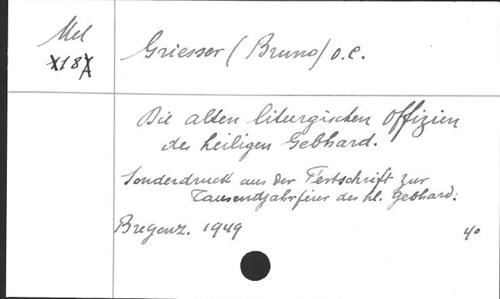 Mel
X18A
Griesser (Bruno) O.C.
Die alten liturgischen Offizien
des heiligen Gebhard.
Sonderdruck aus der Festschrift zur
Tausendjahrfeier des hl. Gebhard:
Bregenz. 1949
4o